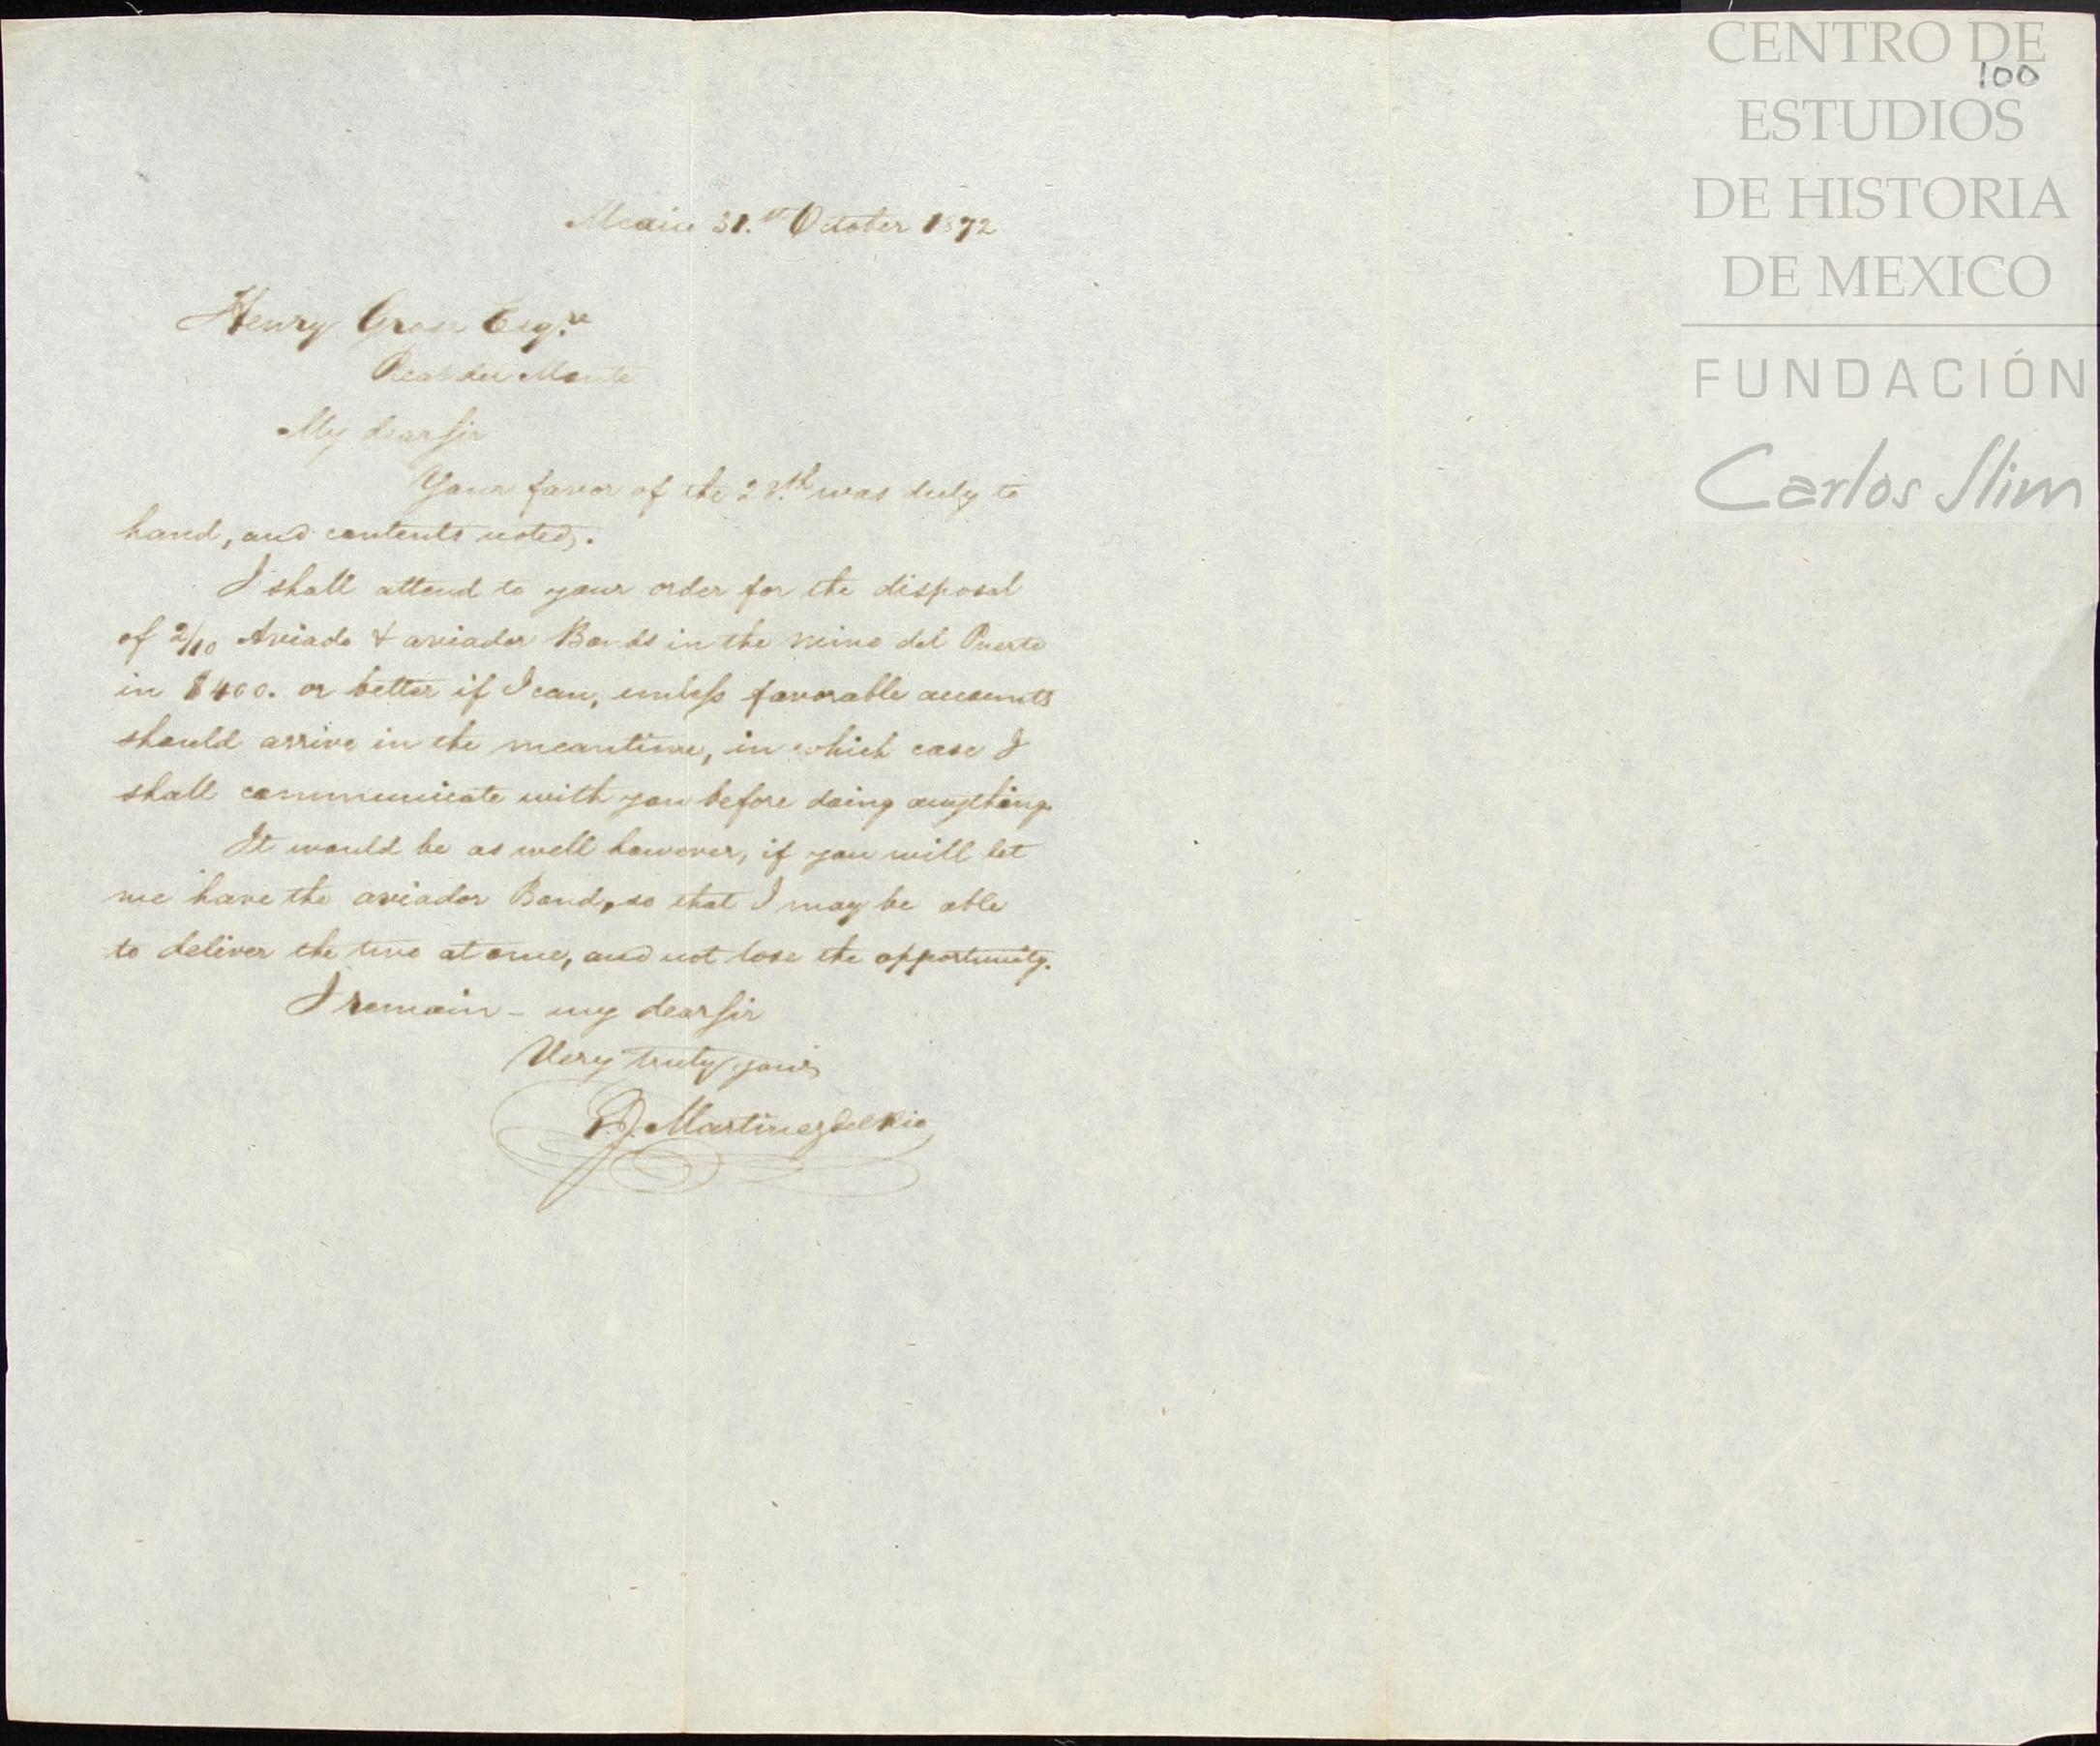 CENTRO DE
100
ESTUDIOS
DE HISTORIA
DE MEXICO
FUNDACIÓN
Carlos Slim
Mexico 31.st October 1872
Henry Esq.re
Real del Monte
My dear Sir
Your favor of the 28.th was duly to
hand, and contents noted.
I shall attend to your order for the disposal
of 2/10 Aviado & aviador Bonds in the mine del Puerto
in $400. or better if I can, unless favorable accounts
should arrive in the meantime, in which case I
shall communicate with you before doing anything.
It would be as well however, if you will let
me have the aviador Bond, so that I may be able
to deliver the two at once, and not lose the opportunity.
I remain - my dear Sir
Very truly yours
Martinez del Rio